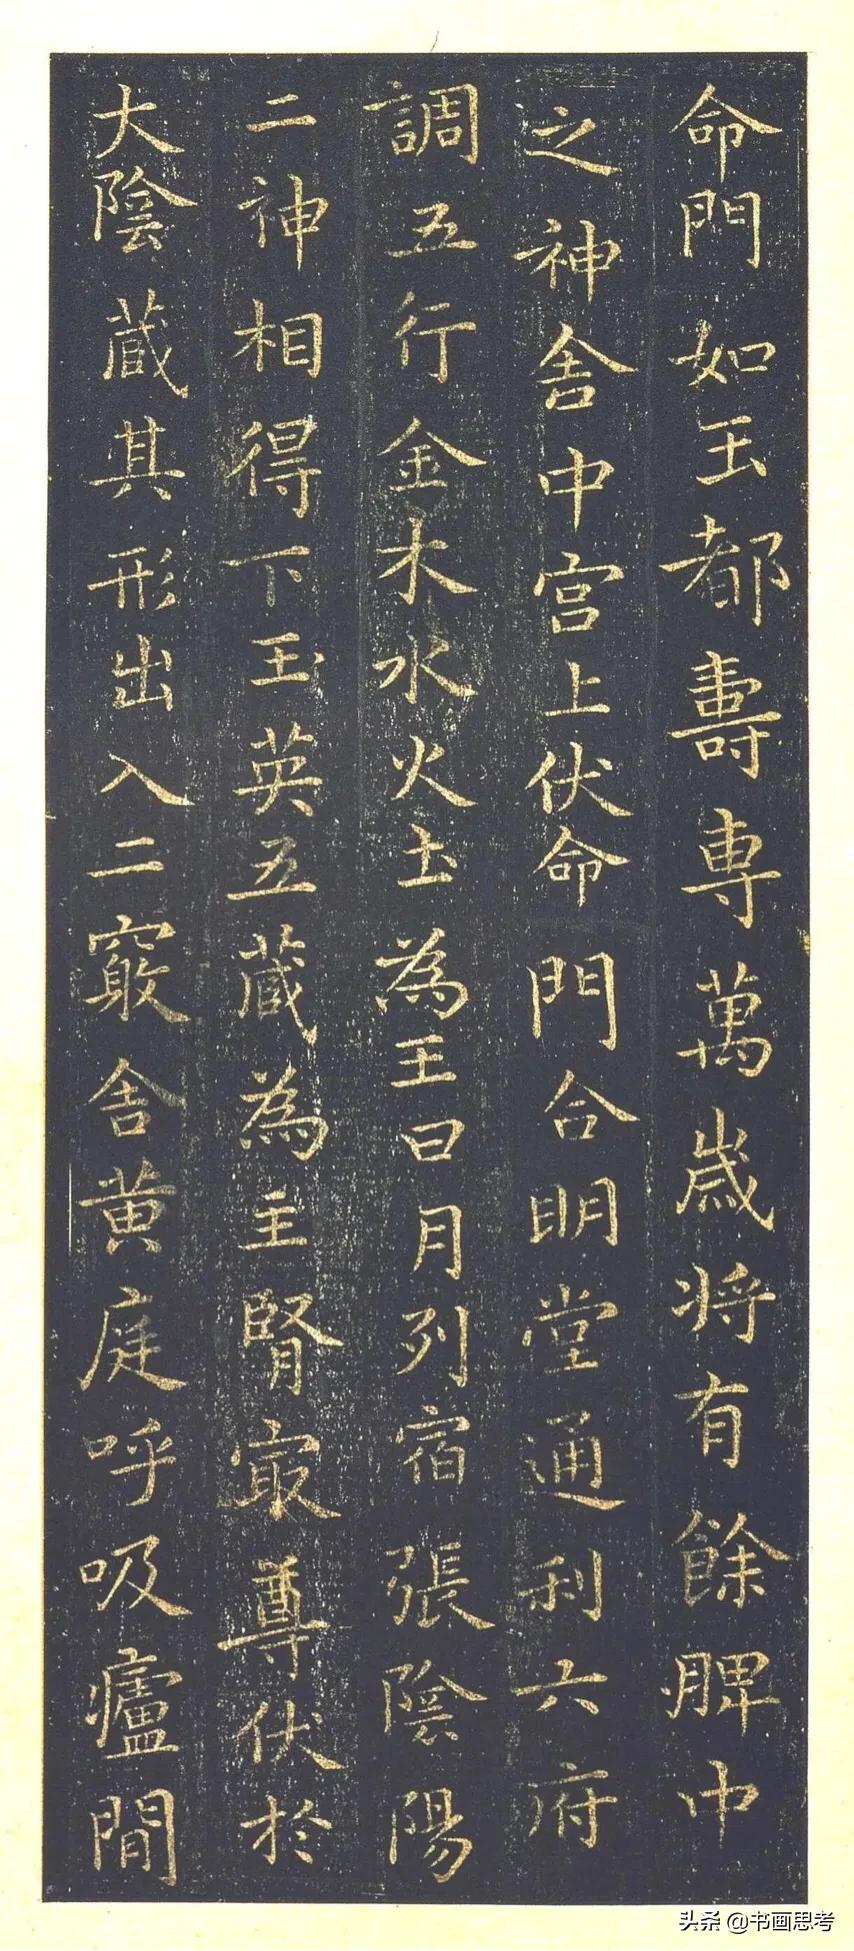 命門如玉都壽專萬歲將有餘脾中
之神舍中宫上伏命門合明堂通利六府
調五行金木水火土為王日月列宿張陰陽
二神相得下玉英五藏為主腎冣尊伏於
大陰藏其形出入二竅舍黄庭呼吸廬間
头条 @书画思考